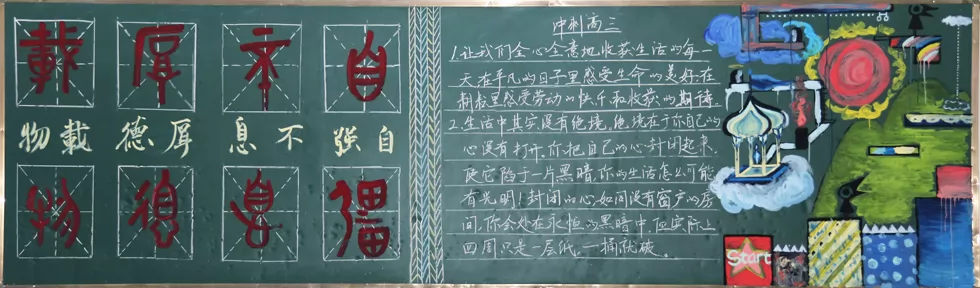 自彊
不息
厚德
載物
自强 不息 厚德 載物
冲刺高三
1.让我们全心全意地收获生活的每一
天在平凡的日子里感受生命的美好,在
耕耘里感受劳动的快乐和收获的期待.
2.生活中其实没有绝境,绝境在于你自己的
心没有打开,你把自己的心封闭起来,
使它陷于一片黑暗,你的生活怎么可能
有光明!封闭的心,如同没有窗户的房
间,你会处在永恒的黑暗中,但实际上
四周只是一层纸,一捅就破.
Start